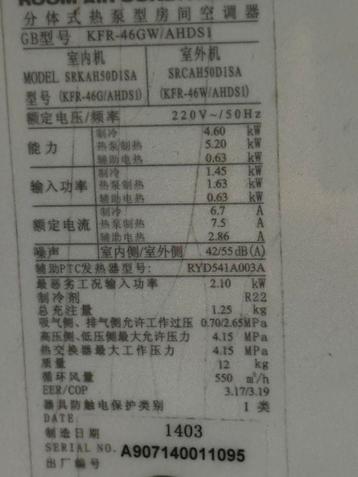 ROOM AIR CONDI
分体式热泵型房间空调器
GB型号 KFR-46GW/AHDS1
室内机 室外机
MODEL SRKAH50D1SA SRCAH50D1SA
型号 (KFR-46G/AHDS1) (KFR-46W/AHDS1)
额定电压/频率 220V~/50Hz
能力 制冷 4.60 kW
热泵制热 5.20 kW
辅助电热 0.63 kW
输入功率 制冷 1.45 kW
热泵制热 1.63 kW
辅助电热 0.63 kW
额定电流 制冷 6.7 A
热泵制热 7.5 A
辅助电热 2.86 A
噪声 室内侧/室外侧 42/55 dB(A)
辅助PTC发热器型号: RYD541A003A
最恶劣工况输入功率 2.10 kW
制冷剂 R22
总充注量 1.25 kg
吸气侧、排气侧允许工作过压 0.70/2.65MPa
高压侧、低压侧最大允许压力 4.15 MPa
热交换器最大工作压力 4.15 MPa
质量 12 kg
循环风量 550 m³/h
EER/COP 3.17/3.19
器具防触电保护类别 I 类
DATE:
制造日期 1403
SERIAL NO. A907140011095
出厂编号